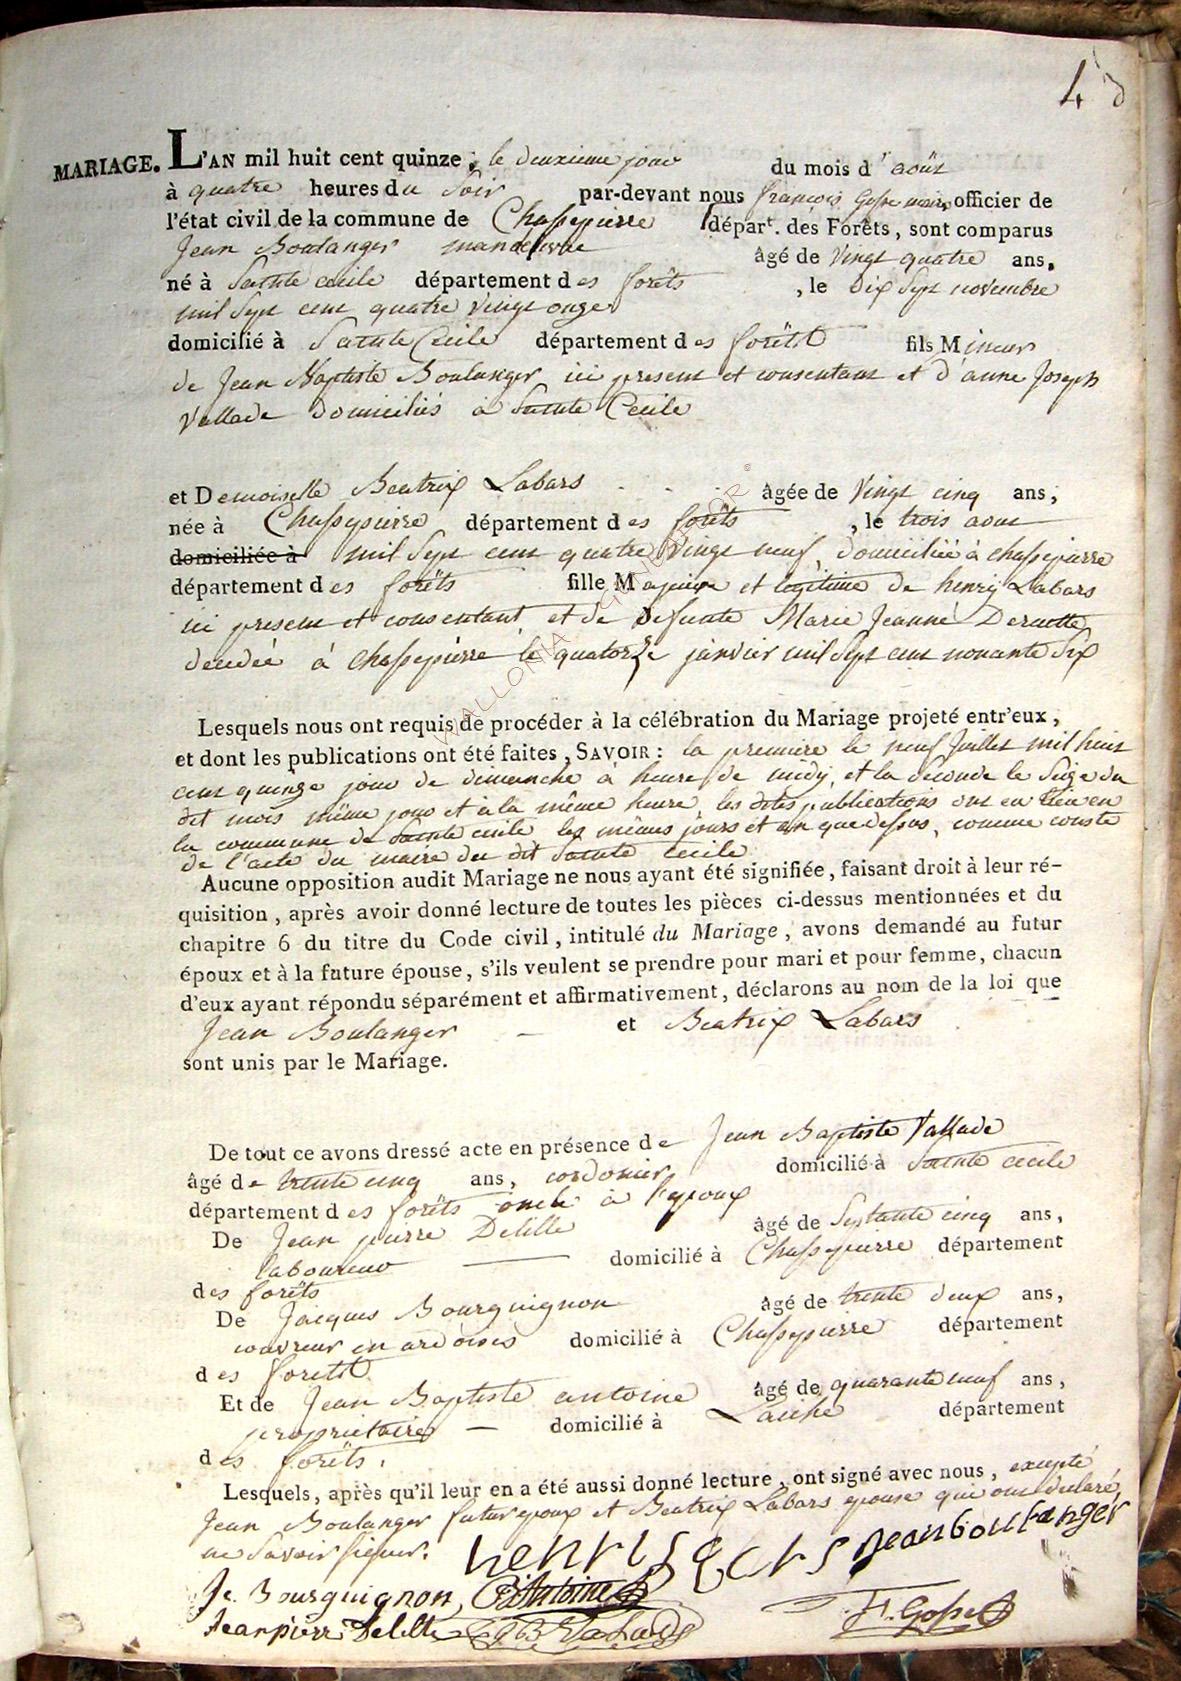 43
MARIAGE. L'AN mil huit cent quinze, le deuxieme jour du mois d' août
à quatre heures du Soir par-devant nous françois Gosse maire, officier de
l'état civil de la commune de Chassepierre dépar<sup>t</sup>. des Forêts, sont comparus
Jean Boulanger manoeuvre âgé de Vingt quatre ans,
né à Sainte cecile département des forêts , le dix Sept novembre
mil Sept cent quatre Vingt onze
domicilié à Sainte Cecile département des forêts fils Mineur
de Jean Baptiste Boulanger ici present et consentant et d'anne Joseph
Vallade domiciliés à Sainte Cecile
et Demoiselle Beatrix Labars âgée de Vingt cinq ans,
née à Chassepierre département des forêts , le trois aout
domiciliée à mil Sept cent quatre Vingt neuf, domiciliée à chassepierre
département des forêts fille Majeure et legitime de henry Labars
ici present et consentant et de defunte Marie Jeanne
decedée à chassepierre le quatorze janvier mil Sept cent nonante Six
Lesquels nous ont requis de procéder à la célébration du Mariage projeté entr'eux,
et dont les publications ont été faites, SAVOIR : la premiere le neuf Juillet mil huit
cent quinze jour de dimanche à heure de midy, et la Seconde le Seize du
dit mois même jour et à la même heure, les dites publications ont eu lieu en
la commune de Sainte cecile les mêmes jours et an que dessus, comme conste
de l'acte du maire du dit Sainte Cecile
Aucune opposition audit Mariage ne nous ayant été signifiée, faisant droit à leur ré-
quisition, après avoir donné lecture de toutes les pièces ci-dessus mentionnées et du
chapitre 6 du titre du Code civil, intitulé du Mariage, avons demandé au futur
époux et à la future épouse, s'ils veulent se prendre pour mari et pour femme, chacun
d'eux ayant répondu séparément et affirmativement, déclarons au nom de la loi que
Jean Boulanger et Beatrix Labars
sont unis par le Mariage.
De tout ce avons dressé acte en présence de Jean Baptiste Vallade
âgé de trente cinq ans, cordonier domicilié à Sainte cecile
département des forêts oncle à l'epoux
De Jean pierre Delille âgé de Septante cinq ans,
laboureur domicilié à Chassepierre département
des forêts
De Jacques Bourguignon âgé de trente deux ans,
couvreur en ardoises domicilié à Chassepierre département
des forêts
Et de Jean Baptiste antoine âgé de quarante neuf ans,
proprietaire domicilié à Laiche département
des forêts.
Lesquels, après qu'il leur en a été aussi donné lecture, ont signé avec nous, excepté
Jean Boulanger futur epoux et Beatrix Labars epouse qui ont declaré
ne Savoir signer.
henri labars Jean boulanger
Je. Bourguignon, Antoine
Jeanpierre Delille JB Valade F. Gosse
WALLONIA GENEANOR ©